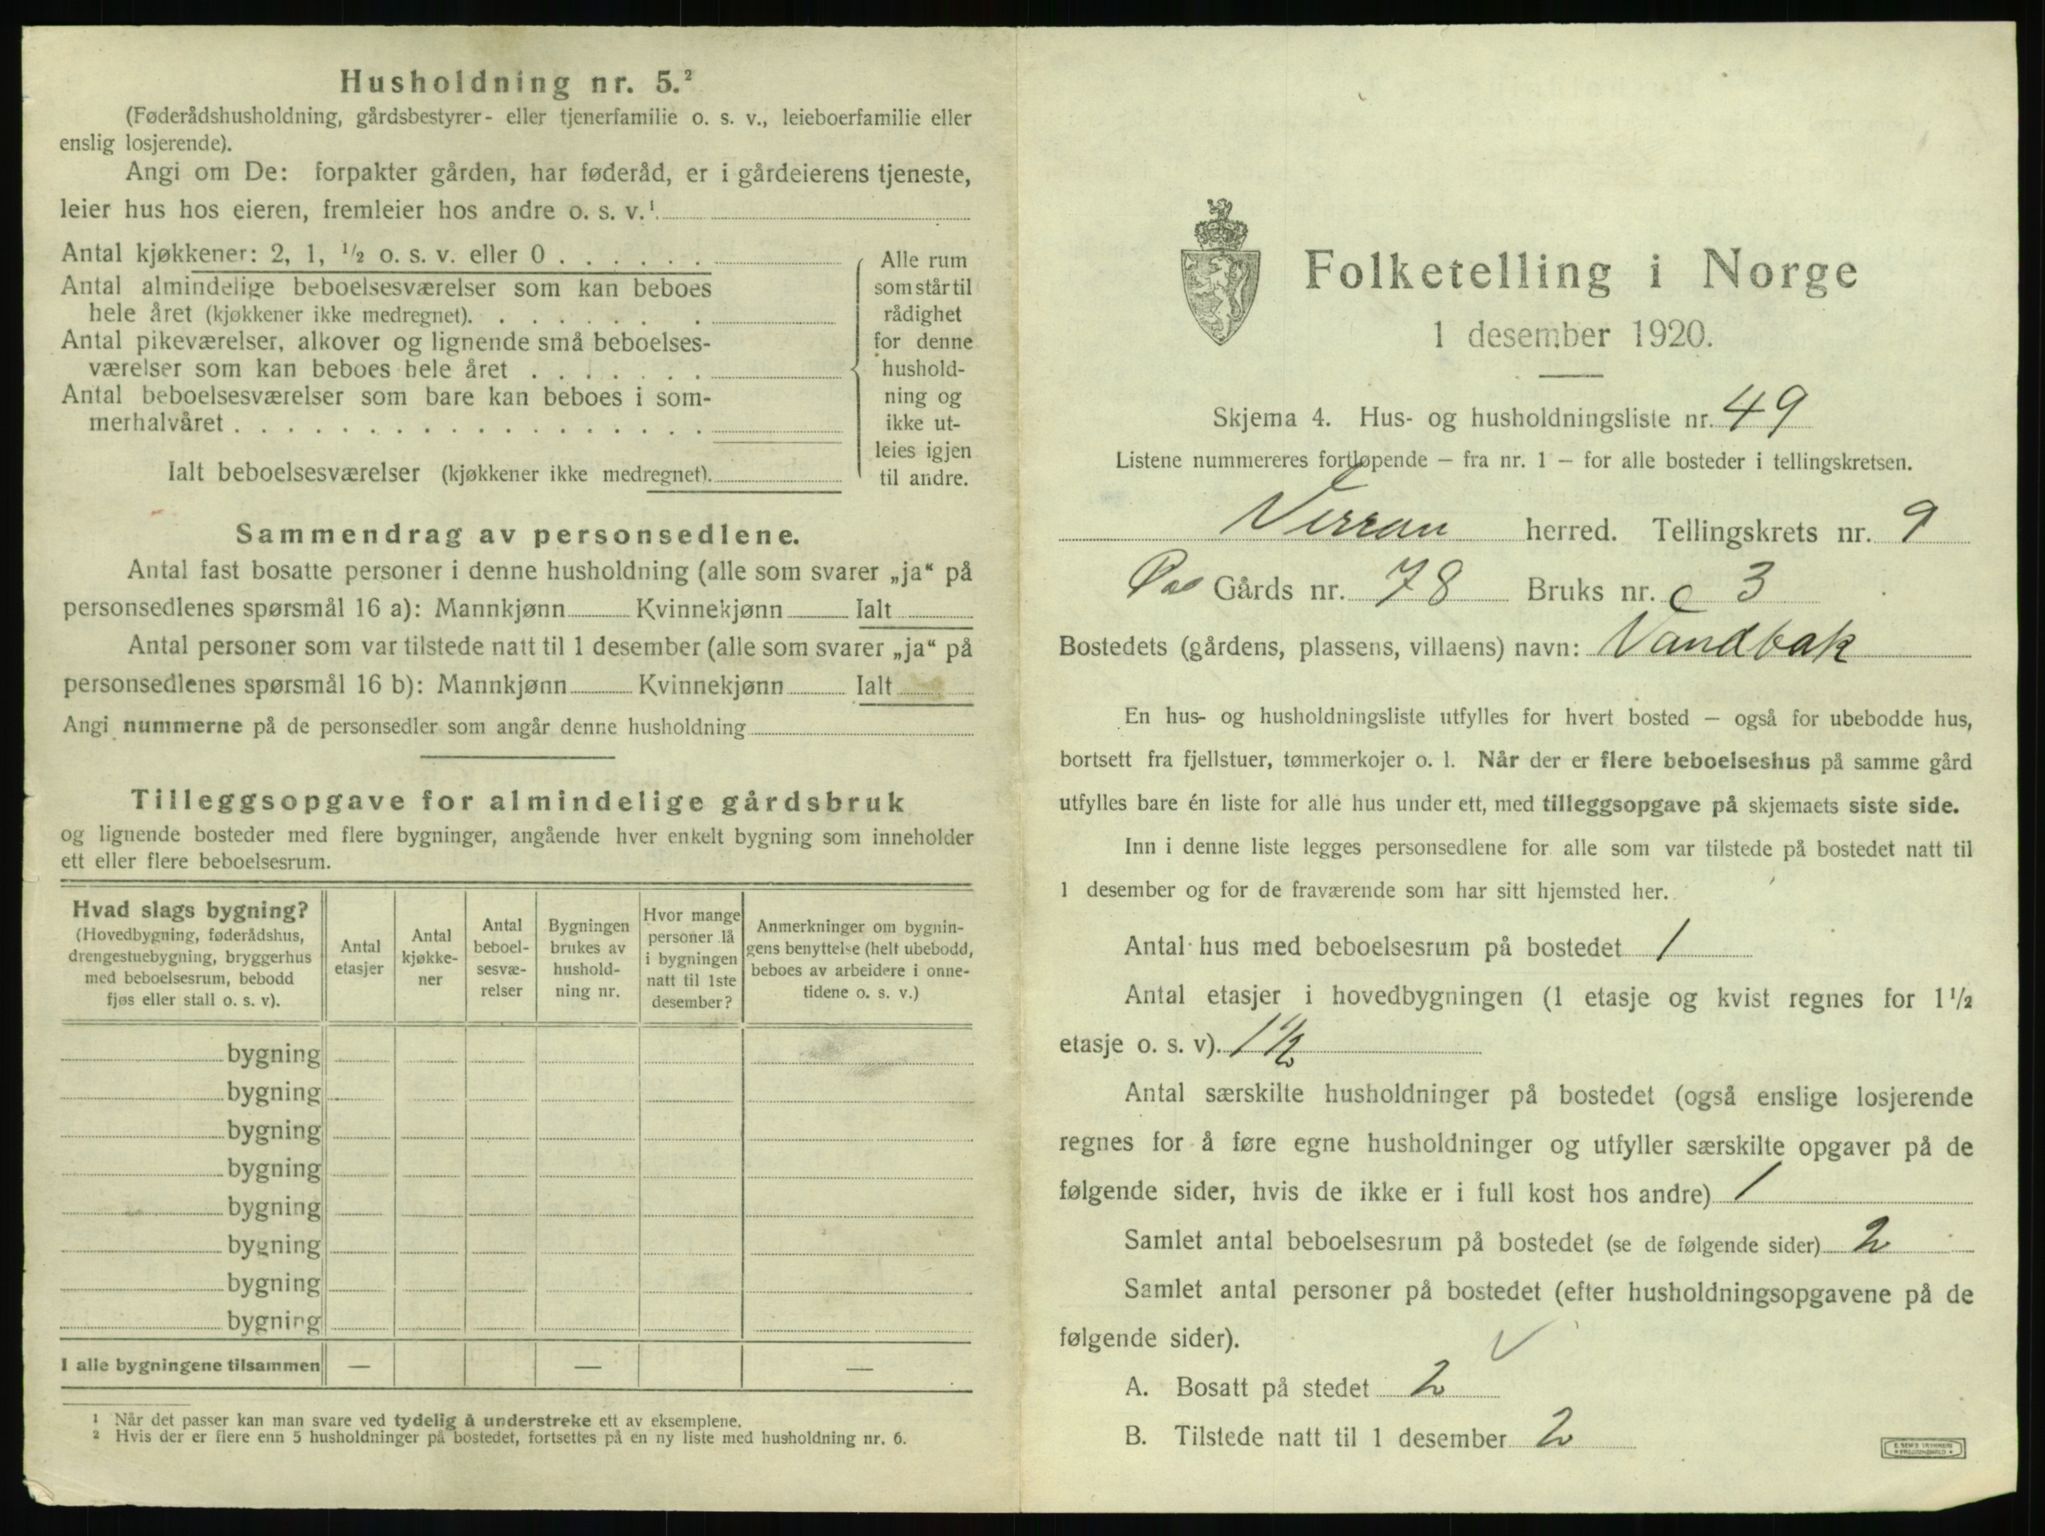 Husholdning nr. 5.²
(Føderådshusholdning, gårdsbestyrer- eller tjenerfamilie o. s. v., leieboerfamilie eller
enslig losjerende).
Angi om De: forpakter gården, har føderåd, er i gårdeierens tjeneste,
leier hus hos eieren, fremleier hos andre o. s. v.¹
Antal kjøkkener: 2, 1, ½ o. s. v. eller 0 . . . . . .
Antal almindelige beboelsesværelser som kan beboes
hele året (kjøkkener ikke medregnet). . . . . . . .
Antal pikeværelser, alkover og lignende små beboelses-
værelser som kan beboes hele året . . . . . . .
Antal beboelsesværelser som bare kan beboes i som-
merhalvåret . . . . . . . . . . . . . . . . . .
Ialt beboelsesværelser (kjøkkener ikke medregnet).
Alle rum
som står til
rådighet
for denne
hushold-
ning og
ikke ut-
leies igjen
til andre.
Sammendrag av personsedlene.
Antal fast bosatte personer i denne husholdning (alle som svarer „ja“ på
personsedlenes spørsmål 16 a): Mannkjønn Kvinnekjønn Ialt
Antal personer som var tilstede natt til 1 desember (alle som svarer „ja“ på
personsedlenes spørsmål 16 b): Mannkjønn Kvinnekjønn Ialt
Angi nummerne på de personsedler som angår denne husholdning
Tilleggsopgave for almindelige gårdsbruk
og lignende bosteder med flere bygninger, angående hver enkelt bygning som inneholder
ett eller flere beboelsesrum.
Hvad slags bygning?
(Hovedbygning, føderådshus,
drengestuebygning, bryggerhus
med beboelsesrum, bebodd
fjøs eller stall o. s. v).
Antal
etasjer
Antal
kjøkke-
ner
Antal
beboel-
sesvæ-
relser
Bygningen
brukes av
hushold-
ning nr.
Hvor mange
personer lå
i bygningen
natt til 1ste
desember?
Anmerkninger om bygnin-
gens benyttelse (helt ubebodd,
beboes av arbeidere i onne-
tidene o. s. v.)
bygning
bygning
bygning
bygning
bygning
bygning
bygning
bygning
I alle bygningene tilsammen — — —
¹ Når det passer kan man svare ved tydelig å understreke ett av eksemplene.
² Hvis der er flere enn 5 husholdninger på bostedet, fortsettes på en ny liste med husholdning nr. 6.
Folketelling i Norge
1 desember 1920.
Skjema 4. Hus- og husholdningsliste nr. 49
Listene nummereres fortløpende – fra nr. 1 – for alle bosteder i tellingskretsen.
Verran herred. Tellingskrets nr. 9
Gårds nr. 78 Bruks nr. 3
Bostedets (gårdens, plassens, villaens) navn: Vandbak
En hus- og husholdningsliste utfylles for hvert bosted – også for ubebodde hus,
bortsett fra fjellstuer, tømmerkojer o. l. Når der er flere beboelseshus på samme gård
utfylles bare én liste for alle hus under ett, med tilleggsopgave på skjemaets siste side.
Inn i denne liste legges personsedlene for alle som var tilstede på bostedet natt til
1 desember og for de fraværende som har sitt hjemsted her.
Antal hus med beboelsesrum på bostedet 1
Antal etasjer i hovedbygningen (1 etasje og kvist regnes for 1½
etasje o. s. v). 1½
Antal særskilte husholdninger på bostedet (også enslige losjerende
regnes for å føre egne husholdninger og utfyller særskilte opgaver på de
følgende sider, hvis de ikke er i full kost hos andre) 1
Samlet antal beboelsesrum på bostedet (se de følgende sider) 2
Samlet antal personer på bostedet (efter husholdningsopgavene på de
følgende sider).
A. Bosatt på stedet 2
B. Tilstede natt til 1 desember 2